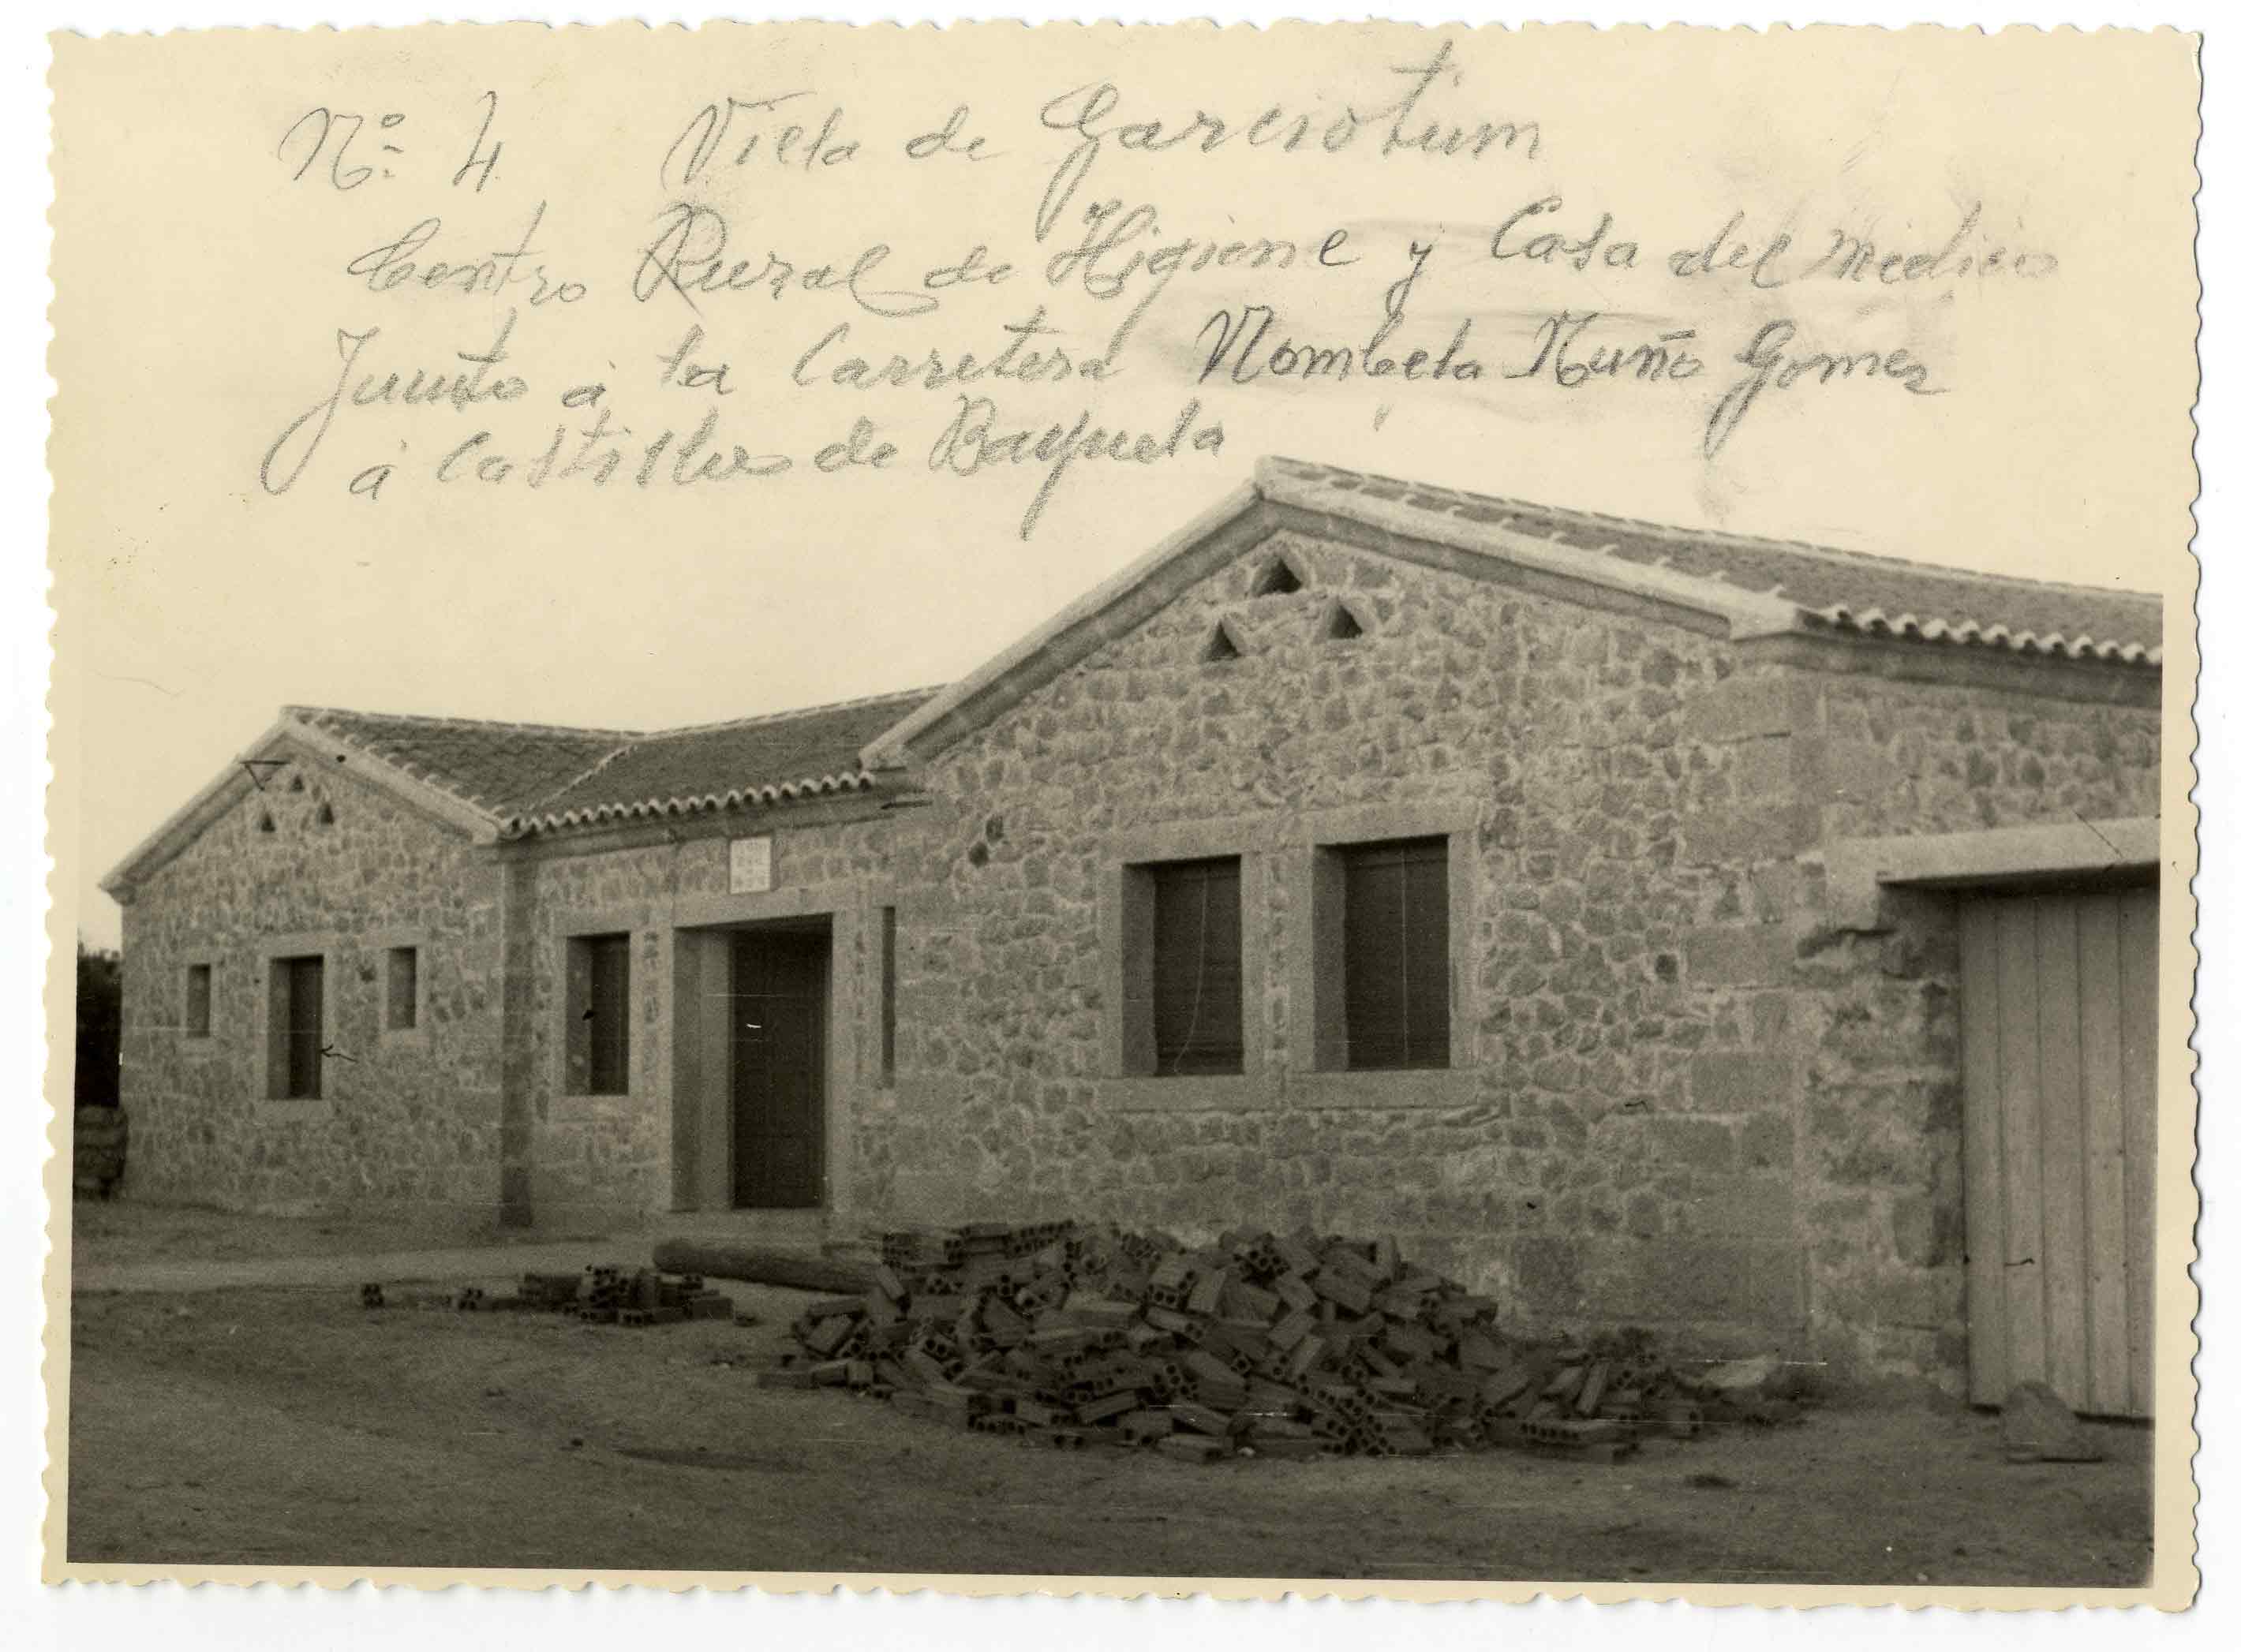 Nº 4 Villa de Garciotum
Centro Rural de Higiene y Casa del Medico
Junto á la Carretera Nombela Nuño Gomez
á Castillo de Bayuela